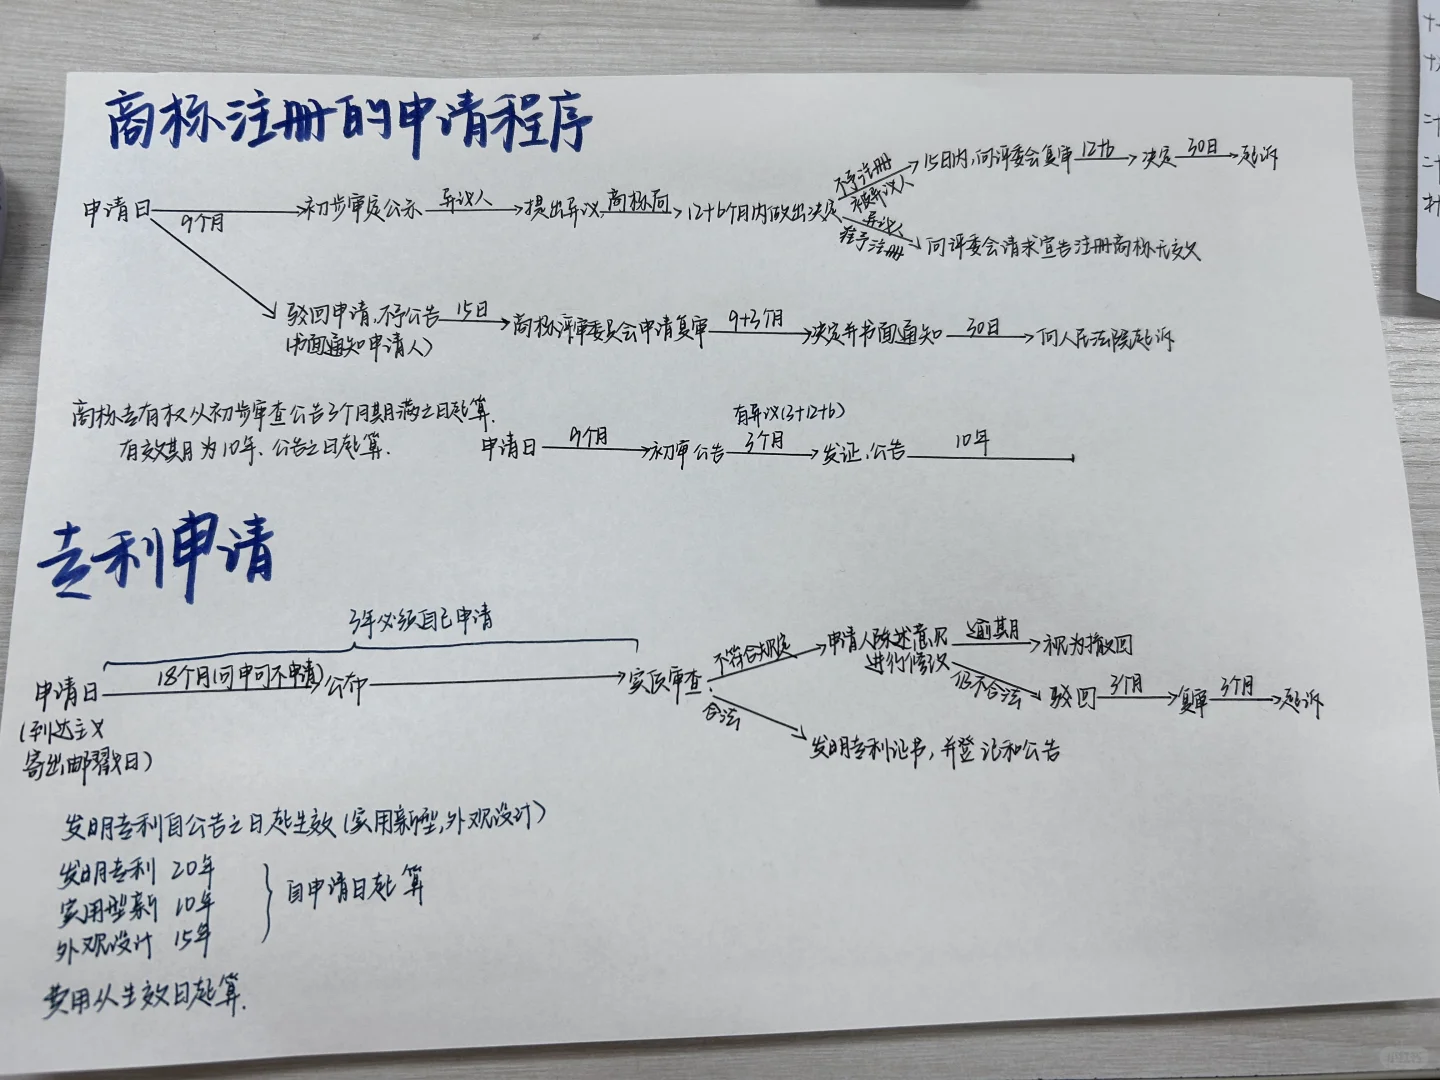 商标注册的申请程序
申请日 9个月 初步审定公示 异议人 提出异议 商标局 12+6个月内做出决定
不予注册 被异议人 15日内,向评委会复审 12+6 决定 30日 起诉
异议人 准予注册 向评委会请求宣告注册商标无效
驳回申请,不予公告 15日 商标评审委员会申请复审 9+3个月 决定并书面通知 30日 向人民法院起诉
(书面通知申请人)
商标专有权从初步审查公告3个月期满之日起算.
有效期为10年、公告之日起算.
有异议(3+12+6)
申请日 9个月 初审公告 3个月 发证,公告 10年
专利申请
3年必须自己申请
申请日 18个月(可申可不申请) 公布 实质审查
(到达主义
寄出邮戳日)
不符合规定 申请人陈述意见 逾期 视为撤回
进行修改 仍不合法 驳回 3个月 复审 3个月 起诉
合法 发明专利证书,并登记和公告
发明专利自公告之日起生效(实用新型,外观设计)
发明专利 20年
实用型新 10年
外观设计 15年
自申请日起算
费用从生效日起算.